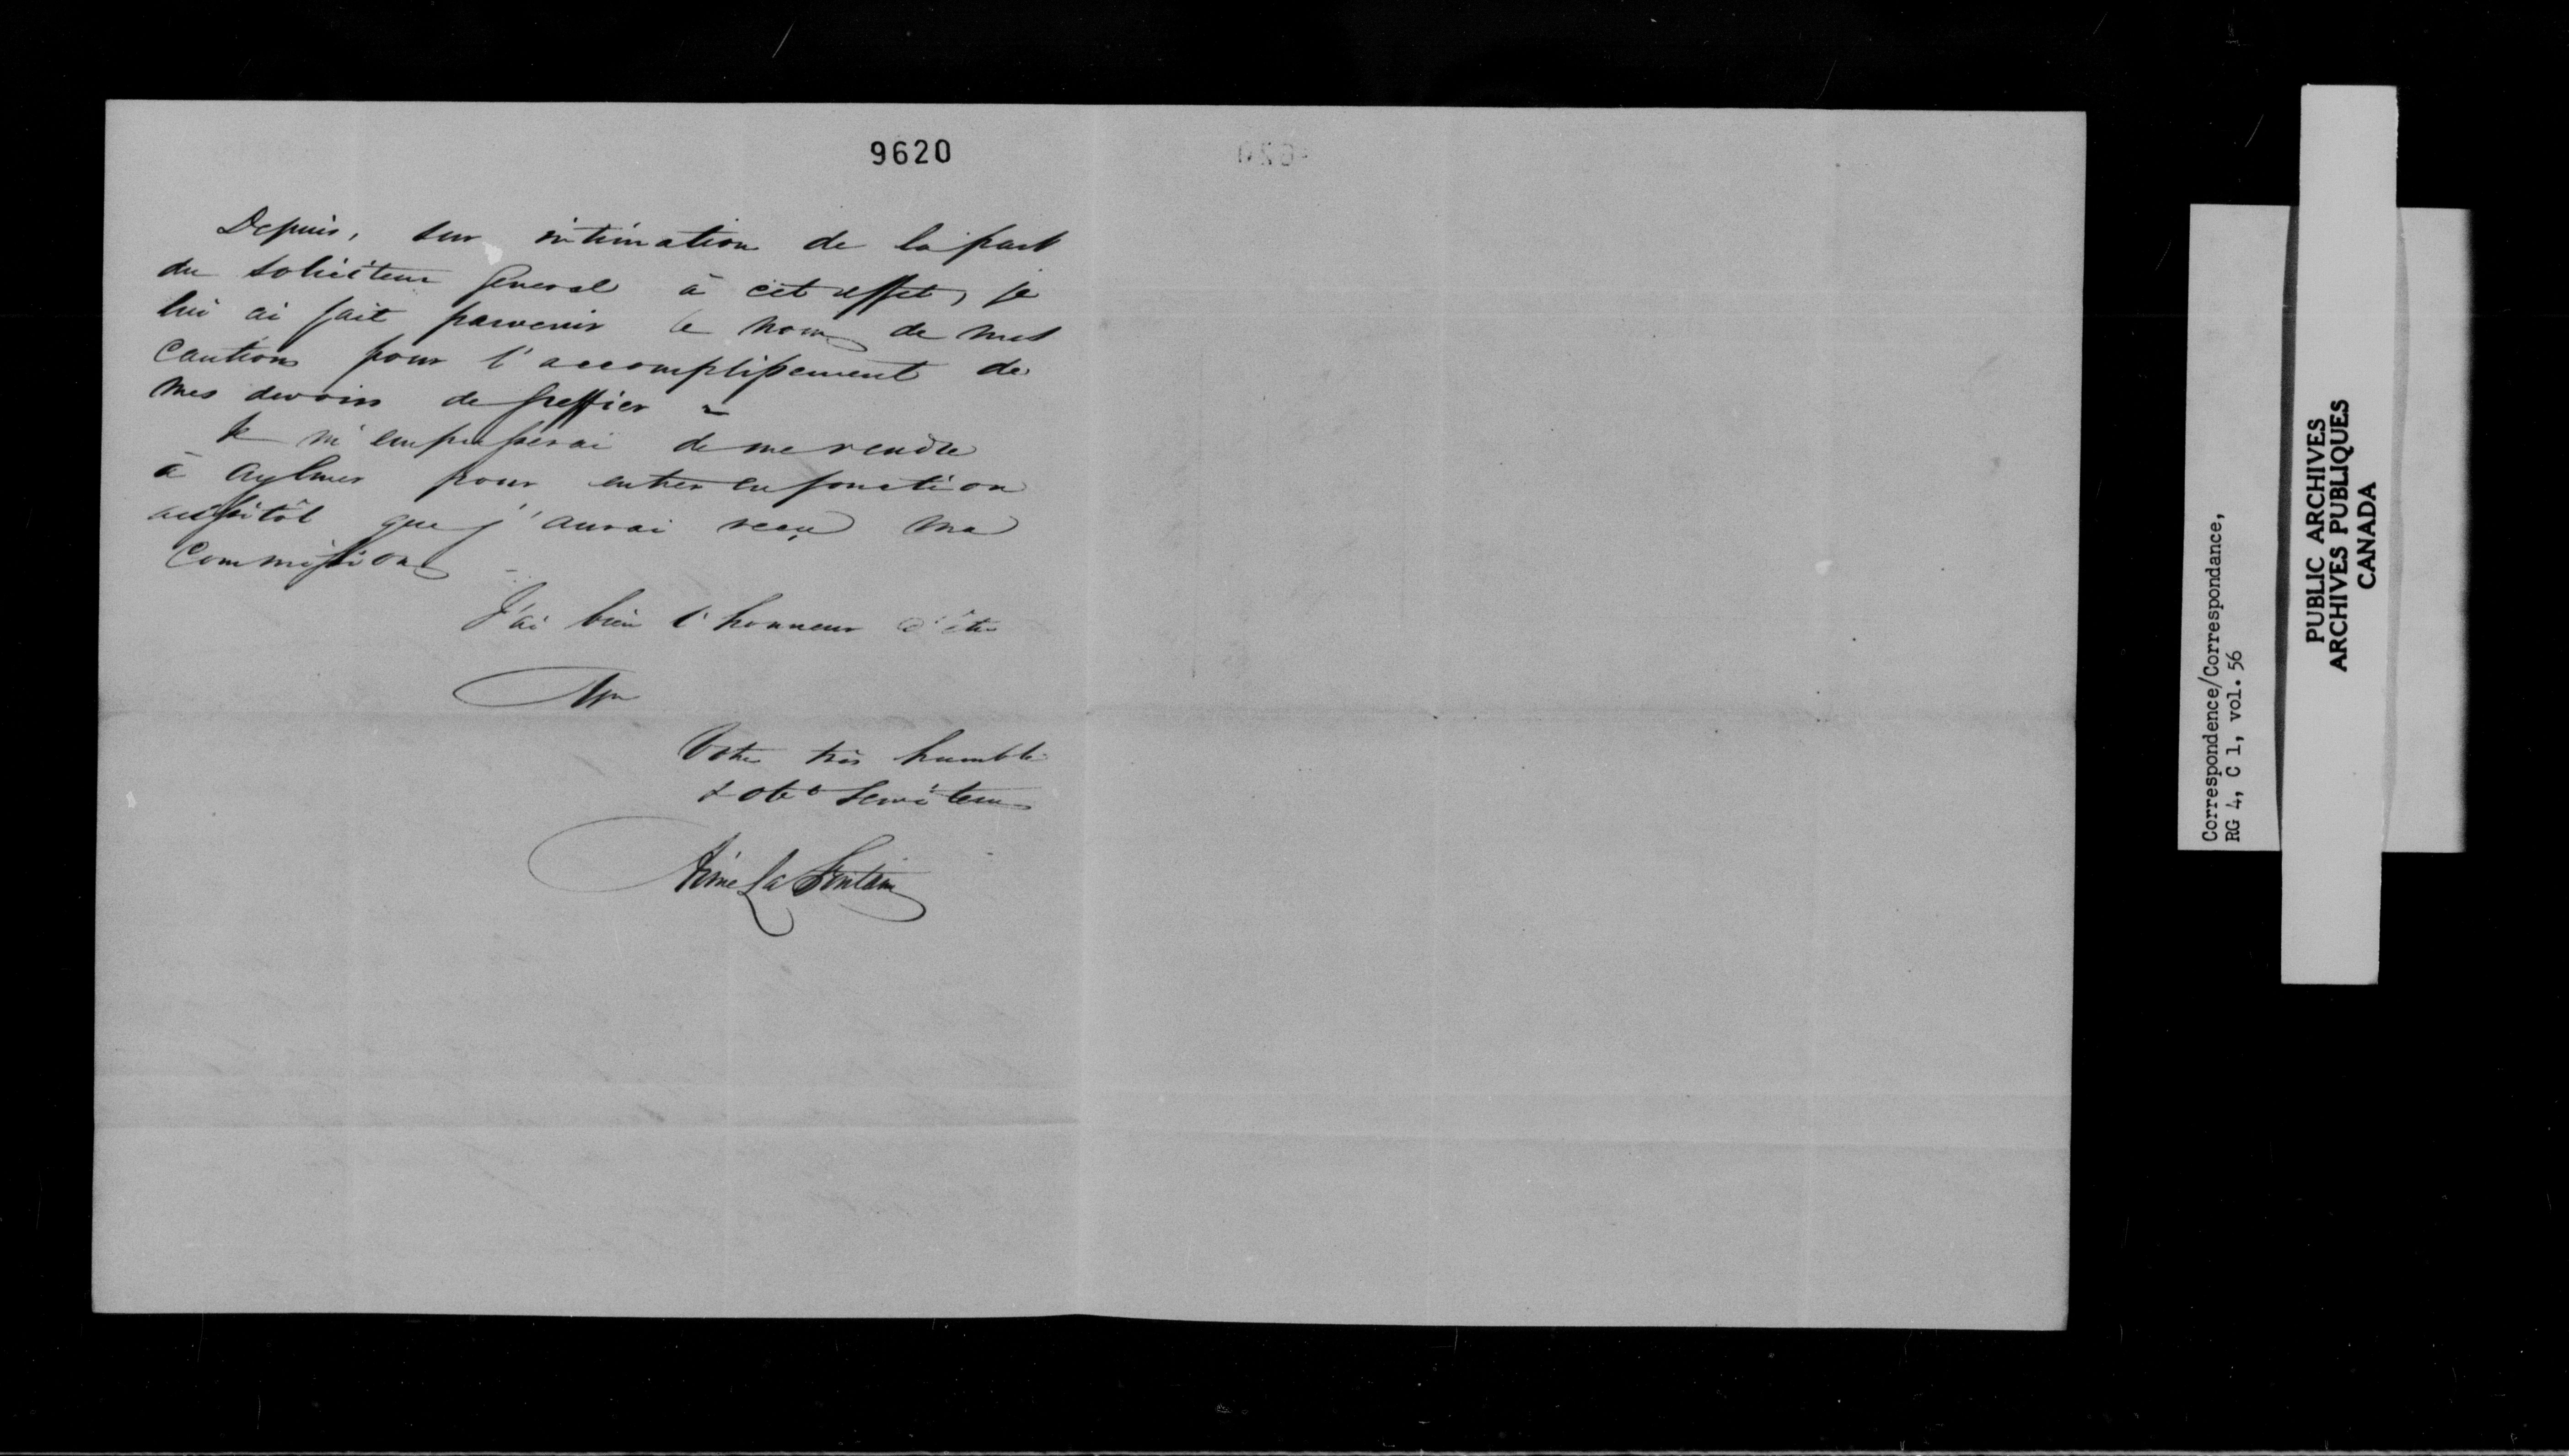 9620
Depuis, sur intimation de la part
du soliciteur General à cet effet, je
lui ai fait parvenir le nom de mes
Cautions pour l'accomplissement de
mes devoirs de Greffier -
Je m'empresserai de me rendre
à Aylmer pour entrer en fonction
aussitôt que j'aurai reçu ma
Commission -
J'ai bien l'honneur d'être
Mr
Votre très humble
& obt Serviteur
Aimé La Fontaine
Correspondence/Correspondance,
RG 4, C 1, vol. 56
PUBLIC ARCHIVES
ARCHIVES PUBLIQUES
CANADA